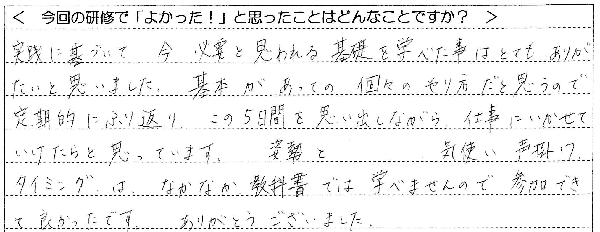 < 今回の研修で「よかった！」と思ったことはどんなことですか？ >
実践に基づいて 今 必要と思われる 基礎を学べた事はとても ありが
たいと思いました。 基本が あっての 個々の やり方だと思うので
定期的にふり返り、この5日間を思い出しながら、仕事にいかせて
いけたらと思っています。 姿勢と 気使い 声掛け、
タイミングは、なかなか教科書では学べませんので 参加でき
て良かったです。 ありがとうございました。